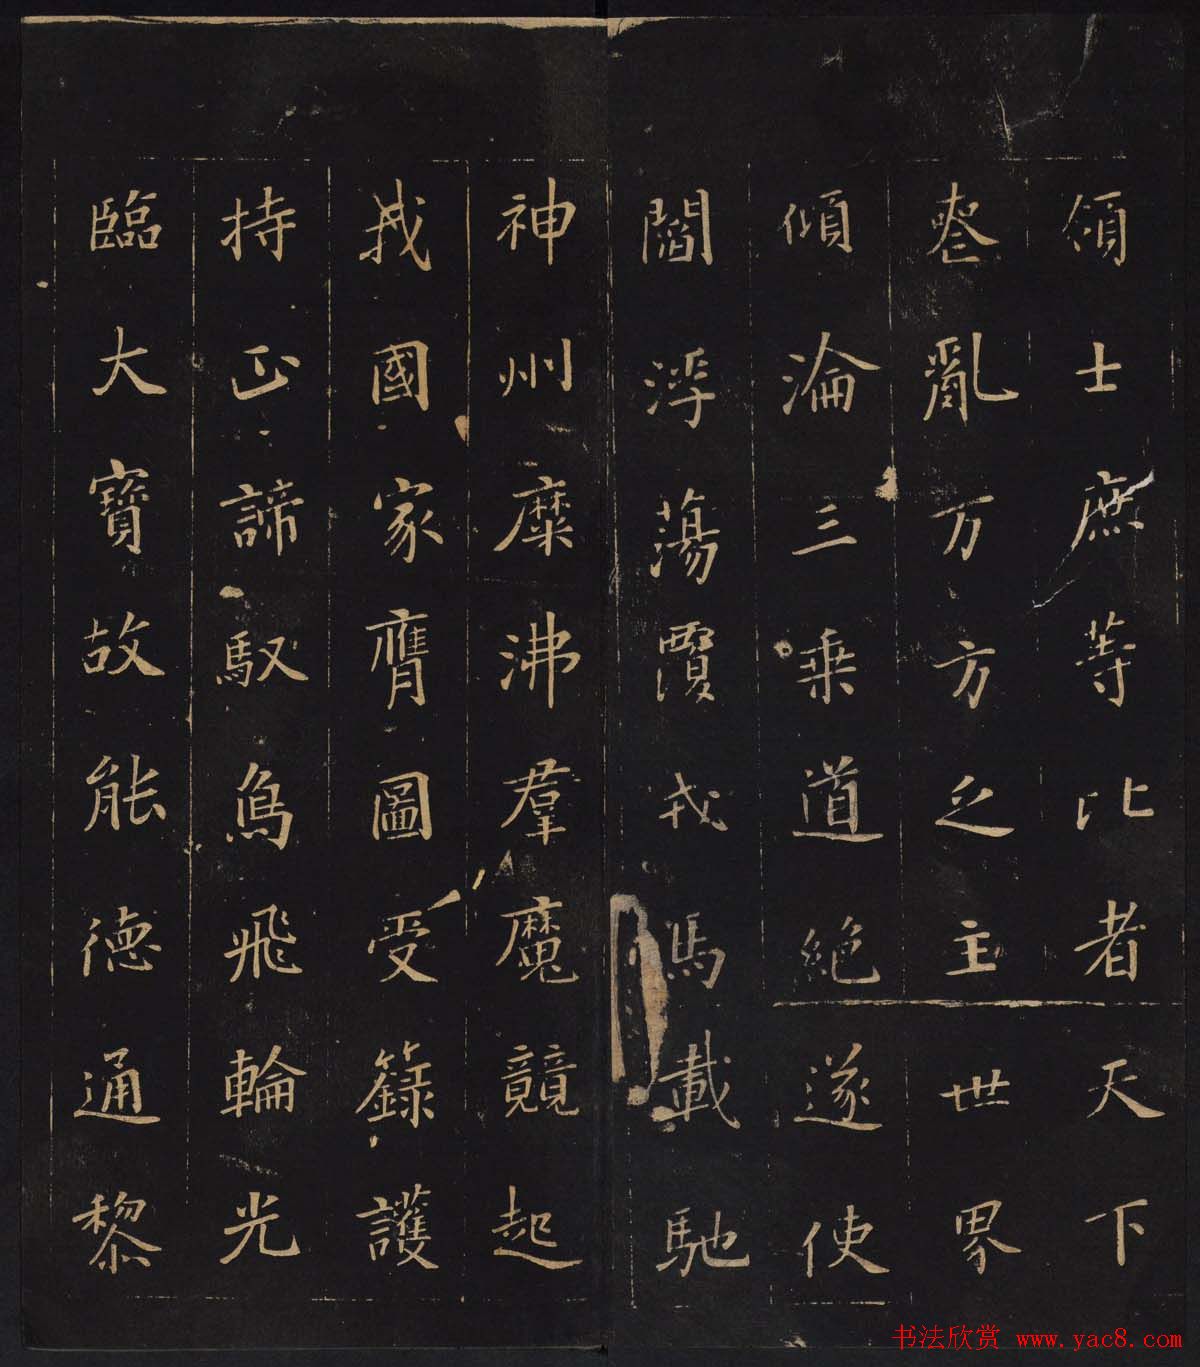 領士庶等比者天下
喪亂万方乏主世界
傾淪三乗道絶遂使
閻浮蕩覆戎馬載馳
神州糜沸羣魔競起
我國家膺圖受籙護
持正諦馭鳥飛輪光
臨大寶故能德通黎
书法欣赏 www.yac8.com